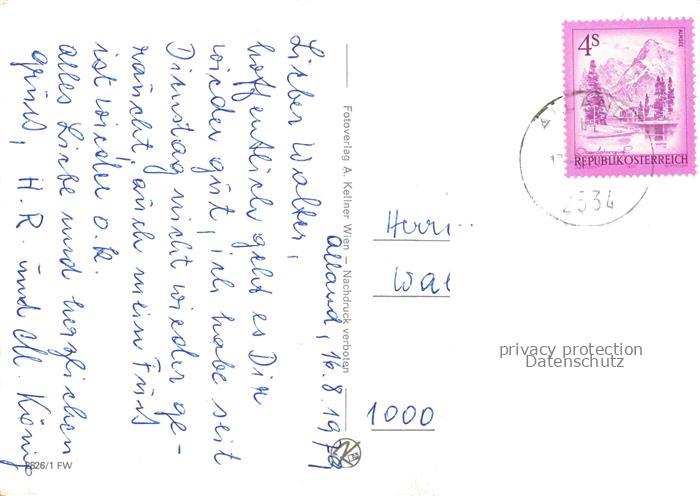 Alland, 16.8.19
Lieber Walter,
hoffentlich geht es Dir
wieder gut, ich habe seit
Dienstag nicht wieder ge-
raucht, auch mein Fuß
ist wieder o.k.
Alles Liebe und herzlichen
Gruß, H. R. und M. König
Fotoverlag A. Kellner Wien — Nachdruck verboten
2826/1 FW
4S
ALMSEE
REPUBLIK ÖSTERREICH
2534
Herrn
Wal
1000
privacy protection
Datenschutz